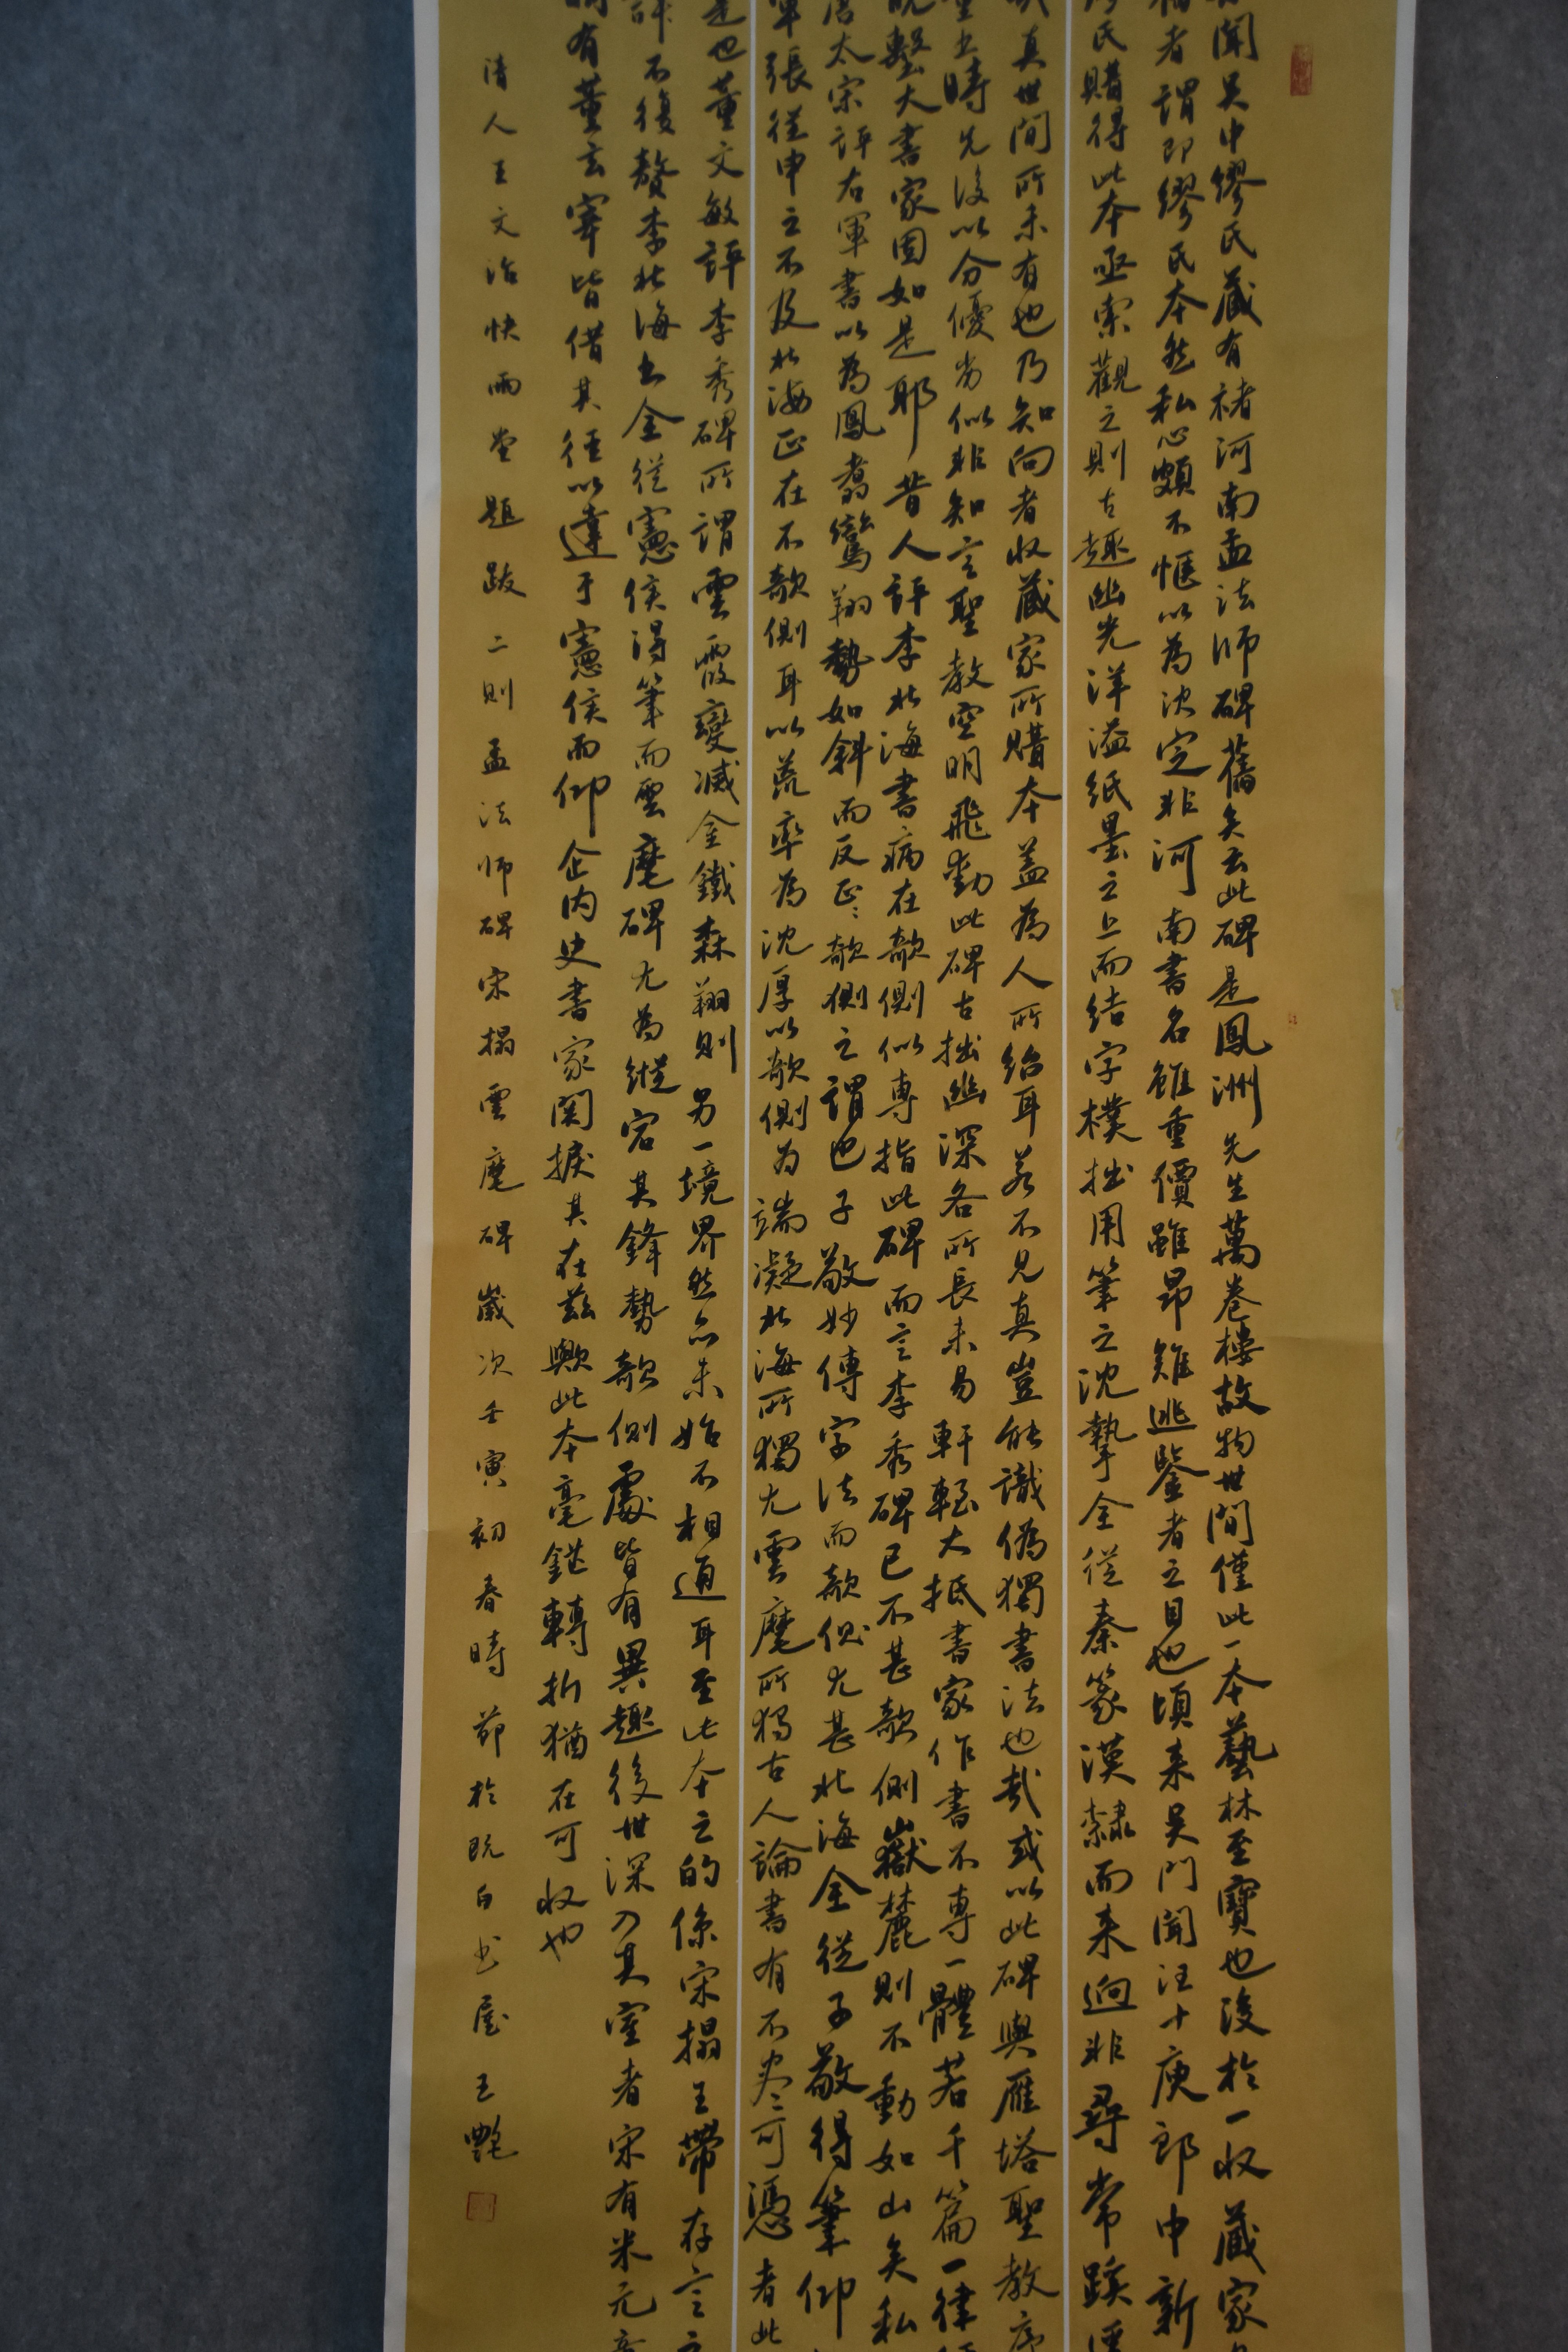 聞吳中繆氏藏有褚河南孟法師碑舊矣云此碑是鳳洲先生萬卷樓故物世間僅此一本藝林至寶也後於一收藏家
者謂即繆氏本然私心頗不愜以為決定非河南書名雖重價雖昂難逃鑒者之目也頃來吳門聞汪十庚郎中新
氏購得此本亟索觀之則古趣幽光洋溢紙墨之上而結字樸拙用筆之沈摯全從秦篆漢隸而來迥非尋常蹊
真世間所未有也乃知向者收藏家所購本蓋為人所紿耳若不見真豈能識偽獨書法也哉或以此碑與雁塔聖教序
書時先後以分優劣似非知言聖教空明飛動此碑古拙幽深各所長未易軒輊大抵書家作書不專一體若千篇一律
大書家固如是耶昔人評李北海書病在欹側似專指此碑而言李秀碑已不甚欹側嶽麓則不動如山矣私
太宗評右軍書以為鳳翥鸞翔勢如斜而反正正欹側之謂也子敬妙傳字法而欹側尤甚北海全從子敬得筆仰
張從申之不及北海正在不欹側耳以荒率為沈厚以欹側為端凝北海所獨尤雲麾所獨古人論書有不盡可憑者此
是也董文敏評李秀碑所謂雲霞變滅金鐵森翔則另一境界然亦未始不相通耳至此本之的係宋搨王帶存言之
不復贅李北海書全從憲侯得筆而雲麾碑尤為縱宕其鋒勢欹側處皆有異趣後世深入其室者宋有米元章
有董玄宰皆借其徑以達于憲侯而仰企內史書家關捩其在茲歟此本毫鋩轉折猶在可收也
清人王文治快雨堂題跋二則孟法師碑宋搨雲麾碑歲次壬寅初春時節於既白書屋王艷